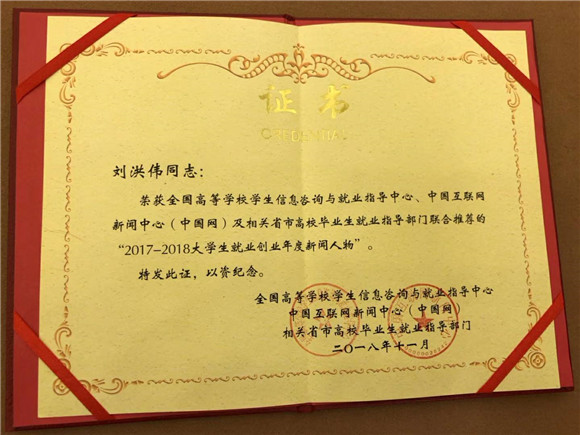 证书
CREDENTIAL
刘洪伟同志：
荣获全国高等学校学生信息咨询与就业指导中心、中国互联网
新闻中心（中国网）及相关省市高校毕业生就业指导部门联合推荐的
“2017-2018大学生就业创业年度新闻人物”。
特发此证，以资纪念。
全国高等学校学生信息咨询与就业指导中心
中国互联网新闻中心 中国网
相关省市高校毕业生就业指导部门
二〇一八年十一月